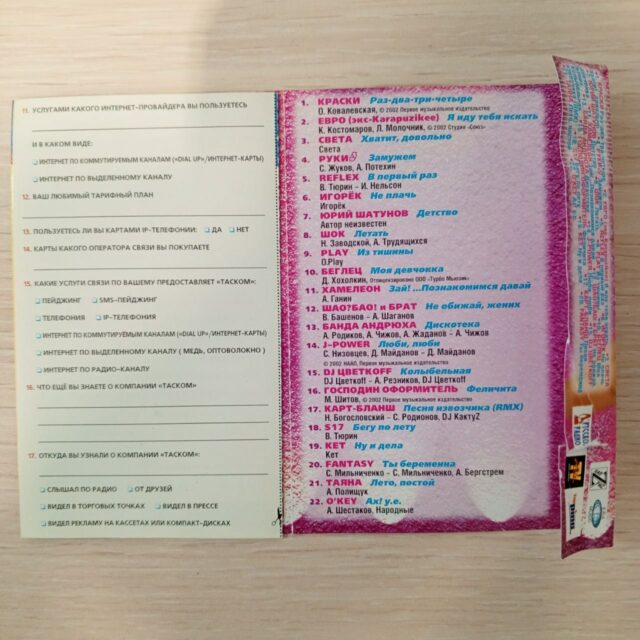 11. УСЛУГАМИ КАКОГО ИНТЕРНЕТ-ПРОВАЙДЕРА ВЫ ПОЛЬЗУЕТЕСЬ
И В КАКОМ ВИДЕ:
ИНТЕРНЕТ ПО КОММУТИРУЕМЫМ КАНАЛАМ («DIAL UP»/ИНТЕРНЕТ-КАРТЫ)
ИНТЕРНЕТ ПО ВЫДЕЛЕННОМУ КАНАЛУ
12. ВАШ ЛЮБИМЫЙ ТАРИФНЫЙ ПЛАН
13. ПОЛЬЗУЕТЕСЬ ЛИ ВЫ КАРТАМИ IP-ТЕЛЕФОНИИ: ДА НЕТ
14. КАРТЫ КАКОГО ОПЕРАТОРА СВЯЗИ ВЫ ПОКУПАЕТЕ
15. КАКИЕ УСЛУГИ СВЯЗИ ПО ВАШЕМУ ПРЕДОСТАВЛЯЕТ «ТАСКОМ»:
ПЕЙДЖИНГ SMS-ПЕЙДЖИНГ
ТЕЛЕФОНИЯ IP-ТЕЛЕФОНИЯ
ИНТЕРНЕТ ПО КОММУТИРУЕМЫМ КАНАЛАМ («DIAL UP»/ИНТЕРНЕТ-КАРТЫ)
ИНТЕРНЕТ ПО ВЫДЕЛЕННОМУ КАНАЛУ ( МЕДЬ, ОПТОВОЛОКНО )
ИНТЕРНЕТ ПО РАДИО-КАНАЛУ
16. ЧТО ЕЩЁ ВЫ ЗНАЕТЕ О КОМПАНИИ «ТАСКОМ»
17. ОТКУДА ВЫ УЗНАЛИ О КОМПАНИИ «ТАСКОМ»:
СЛЫШАЛ ПО РАДИО ОТ ДРУЗЕЙ
ВИДЕЛ В ТОРГОВЫХ ТОЧКАХ ВИДЕЛ В ПРЕССЕ
ВИДЕЛ РЕКЛАМУ НА КАССЕТАХ ИЛИ КОМПАКТ-ДИСКАХ
1. КРАСКИ Раз-два-три-четыре
О. Ковалевская, © 2002 Первое музыкальное издательство
2. ЕВРО (экс-Karapuzikee) Я иду тебя искать
К. Костомаров, Л. Молочник, © 2002 Студия «Союз»
3. СВЕТА Хватит, довольно
Света
4. РУКИ Замужем
С. Жуков, А. Потехин
5. REFLEX В первый раз
В. Тюрин – И. Нельсон
6. ИГОРЁК Не плачь
Игорёк
7. ЮРИЙ ШАТУНОВ Детство
Автор неизвестен
8. ШОК Летать
Н. Заводской, А. Трудящихся
9. PLAY Из тишины
O.Play
10. БЕГЛЕЦ Моя девчокка
Д. Хохолкин, Отлицензировано ООО «Турбо Мьюзик»
11. ХАМЕЛЕОН Зай! ...Познакомимся давай
А. Ганин
12. ШАО?БАО! и БРАТ Не обижай, жених
В. Башенов – А. Шаганов
13. БАНДА АНДРЮХА Дискотека
А. Родиков, А. Чижов, А. Жаданов – А. Чижов
14. J-POWER Люби, люби
С. Низовцев, Д. Майданов – Д. Майданов
© 2002 НААО, Первое музыкальное издательство
15. DJ ЦВЕТКОFF Колыбельная
DJ Цветкоff – А. Резников, DJ Цветкоff
16. ГОСПОДИН ОФОРМИТЕЛЬ Феличита
М. Шитов, © 2002 Первое музыкальное издательство
17. КАРТ-БЛАНШ Песня извозчика (RMX)
Н. Богословский – С. Родионов, DJ КактуZ
18. S17 Бегу по лету
В. Тюрин
19. КЕТ Ну и дела
Кет
20. FANTASY Ты беременна
С. Мильниченко – С. Мильниченко, А. Бергстрем
21. ТАЯНА Лето, постой
А. Полищук
22. О'KEY Ах! у.е.
А. Шестаков, Народные
РУССКОЕ
РАДИО